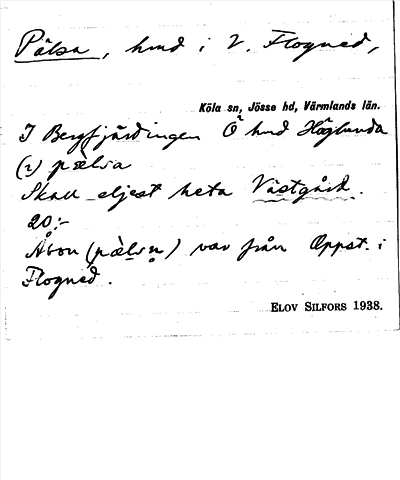 Pälsa, hmd i V. Flogned,
Köla sn, Jösse hd, Värmlands län.
I Bergfjärdingen Ö hmd Höglunda
(2) pælsa
Skall eljest heta Västgård.
20:-
Åbon (pælsṇ) var från Oppst. i
Flogned.
ELOV SILFORS 1938.